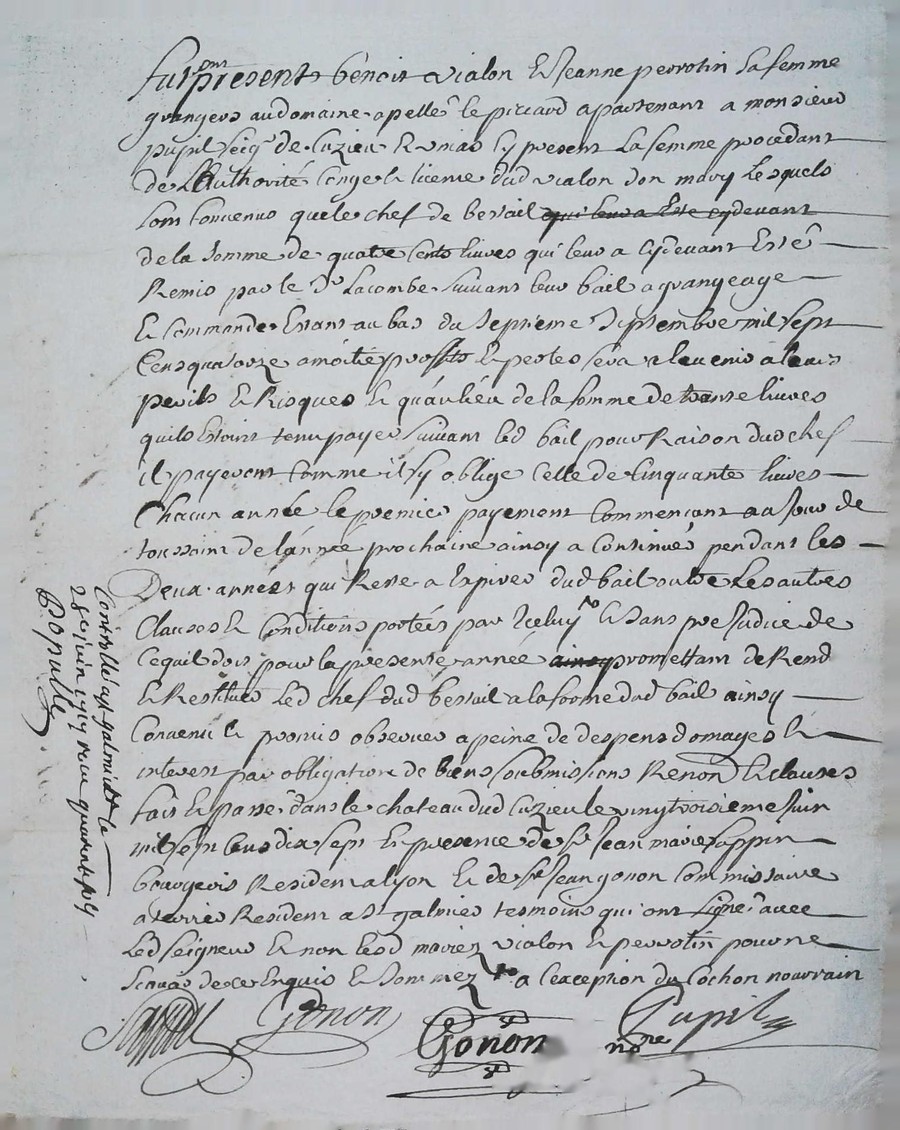 furent presents benoit vialon Et Jeanne perrotin sa femme
grangers au domaine apellé le piccard apartenant a monsieur
pupil seigr de Cuzieu Et unias Cy present la femme procedant
de L'Authorité Conge Et licence dud vialon son mary Lesquels
sont Convenus que le chef de bestail qui leur a Este cydevant
de la somme de quatre Cents livres qui leur a Cydevant Esté
Remis par le Sr Lacombe Suivant leur bail a grangeage
Et Commande Estant au bas du septieme Septembre mil sept
Cens quatorze a moitié proffits Et pertes sera a l'avenir a leurs
perils Et Risques Et qu'au lieu de la somme de trante livres
quils Estoint tenu payer Suivant led bail pour Raison dud chef
il payeront Comme il s'y oblige Celle de Cinquante livres
Chacun année le premier payement Commençant au Jour de
toussaint de l'année prochaine ainsy a Continuer pendant les
Deux années qui Reste a Expirer dud bail outre Les autres
Clauses Et Conditions portées par Iceluy Et sans preJudice de
Ce quil doit pour la presente année ainsy promettant de Rend
Et Restituer Led chef dud bestail a la forme dud bail ainsy
Convenu Et promis observer a peine de despens domages Et
interest par obligation de biens soubmissions Renon Et clauses
fait Et passé dans le chateau dud Cuzieu le vingt troisieme Juin
mil sept Cens dix sept En presence de sr Jean marie sappin
bourgeois Resident a lyon Et de sr Jean gonon Commissaire
a terrier Resident a St galmier tesmoins qui ont signé avec
Led seigneur Et non lesd mariez vialon Et perrotin pour ne
Scavoir de ce Enquis Et Sommez a l'exception du Cochon nourrain
Gonon
Gonon
nore
Pupil
Controllé a st galmier le
28e juin 1717 receu quarente sols